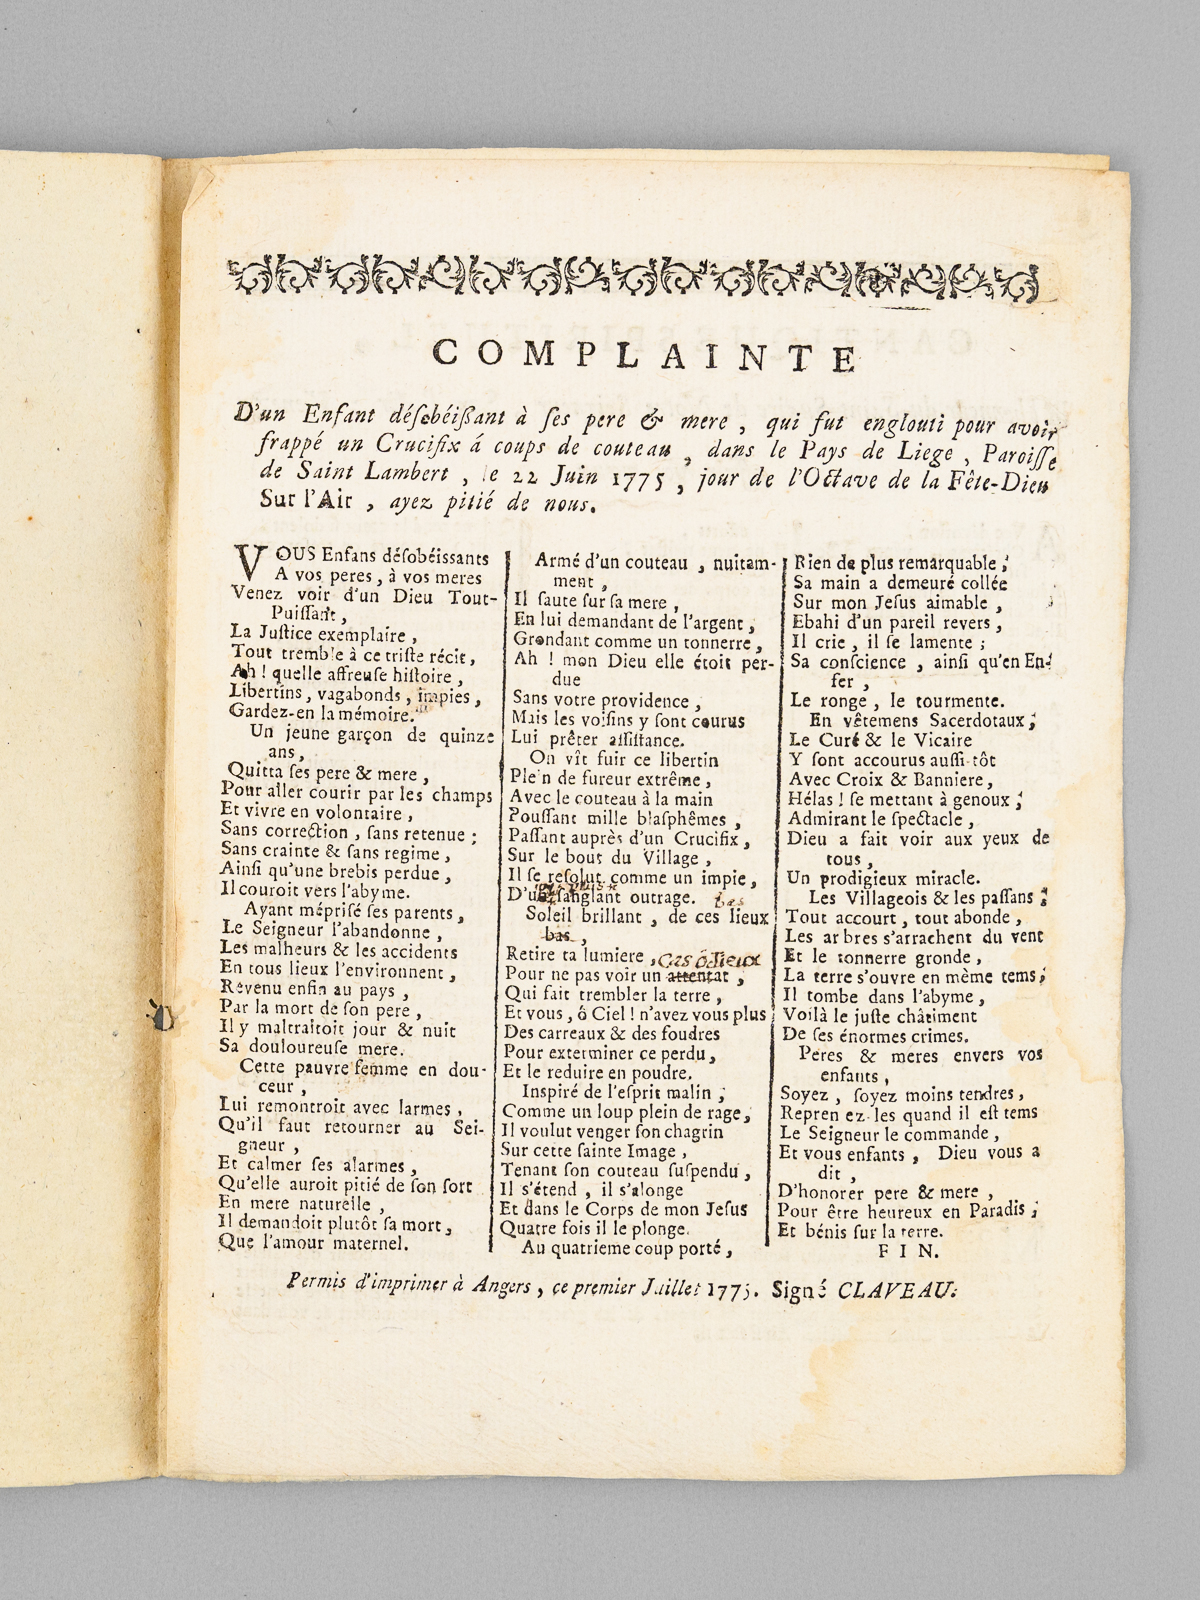 COMPLAINTE
D'un Enfant désobéissant à ses pere & mere, qui fut englouti pour avoir
frappé un Crucifix á coups de couteau, dans le Pays de Liege, Paroisse
de Saint Lambert, le 22 Juin 1775, jour de l'Octave de la Fête-Dieu
Sur l'Air, ayez pitié de nous.
VOUS Enfans désobéissants
A vos peres, à vos meres
Venez voir d'un Dieu Tout-
Puissant,
La Justice exemplaire,
Tout tremble à ce triste récit,
Ah! quelle affreuse histoire,
Libertins, vagabonds, impies,
Gardez-en la mémoire.
Un jeune garçon de quinze
ans,
Quitta ses pere & mere,
Pour aller courir par les champs
Et vivre en volontaire,
Sans correction, sans retenue;
Sans crainte & sans regime,
Ainsi qu'une brebis perdue,
Il couroit vers l'abyme.
Ayant méprisé ses parents,
Le Seigneur l'abandonne,
Les malheurs & les accidents
En tous lieux l'environnent,
Revenu enfin au pays,
Par la mort de son pere,
Il y maltraitoit jour & nuit
Sa douloureuse mere.
Cette pauvre femme en dou-
ceur,
Lui remontroit avec larmes,
Qu'il faut retourner au Sei-
gneur,
Et calmer ses alarmes,
Qu'elle auroit pitié de son sort
En mere naturelle,
Il demandoit plutôt sa mort,
Que l'amour maternel.
Armé d'un couteau, nuitam-
ment,
Il saute sur sa mere,
En lui demandant de l'argent,
Grondant comme un tonnerre,
Ah! mon Dieu elle étoit per-
due
Sans votre providence,
Mais les voisins y sont courus
Lui prêter assistance.
On vît fuir ce libertin
Plein de fureur extrême,
Avec le couteau à la main
Poussant mille blasphêmes,
Passant auprès d'un Crucifix,
Sur le bout du Village,
Il se resolut comme un impie,
D'un sanglant outrage.
bas
Soleil brillant, de ces lieux
bas,
Retire ta lumiere, cas odieux
Pour ne pas voir un attentat,
Qui fait trembler la terre,
Et vous, ô Ciel! n'avez vous plus
Des carreaux & des foudres
Pour exterminer ce perdu,
Et le reduire en poudre.
Inspiré de l'esprit malin;
Comme un loup plein de rage,
Il voulut venger son chagrin
Sur cette sainte Image,
Tenant son couteau suspendu,
Il s'étend, il s'alonge
Et dans le Corps de mon Jesus
Quatre fois il le plonge.
Au quatrieme coup porté,
Rien de plus remarquable;
Sa main a demeuré collée
Sur mon Jesus aimable,
Ebahi d'un pareil revers,
Il crie, il se lamente;
Sa conscience, ainsi qu'en En-
fer,
Le ronge, le tourmente.
En vêtemens Sacerdotaux;
Le Curé & le Vicaire
Y sont accourus aussi-tôt
Avec Croix & Banniere,
Hélas! se mettant à genoux;
Admirant le spectacle,
Dieu a fait voir aux yeux de
tous,
Un prodigieux miracle.
Les Villageois & les passans;
Tout accourt, tout abonde,
Les arbres s'arrachent du vent
Et le tonnerre gronde,
La terre s'ouvre en mème tems;
Il tombe dans l'abyme,
Voilà le juste châtiment
De ses énormes crimes.
Peres & meres envers vos
enfants,
Soyez, soyez moins tendres,
Repren ez-les quand il est tems
Le Seigneur le commande,
Et vous enfants, Dieu vous a
dit,
D'honorer pere & mere,
Pour être heureux en Paradis;
Et bénis sur la terre.
FIN.
Permis d'imprimer à Angers, ce premier Juillet 1775. Signé CLAVEAU.